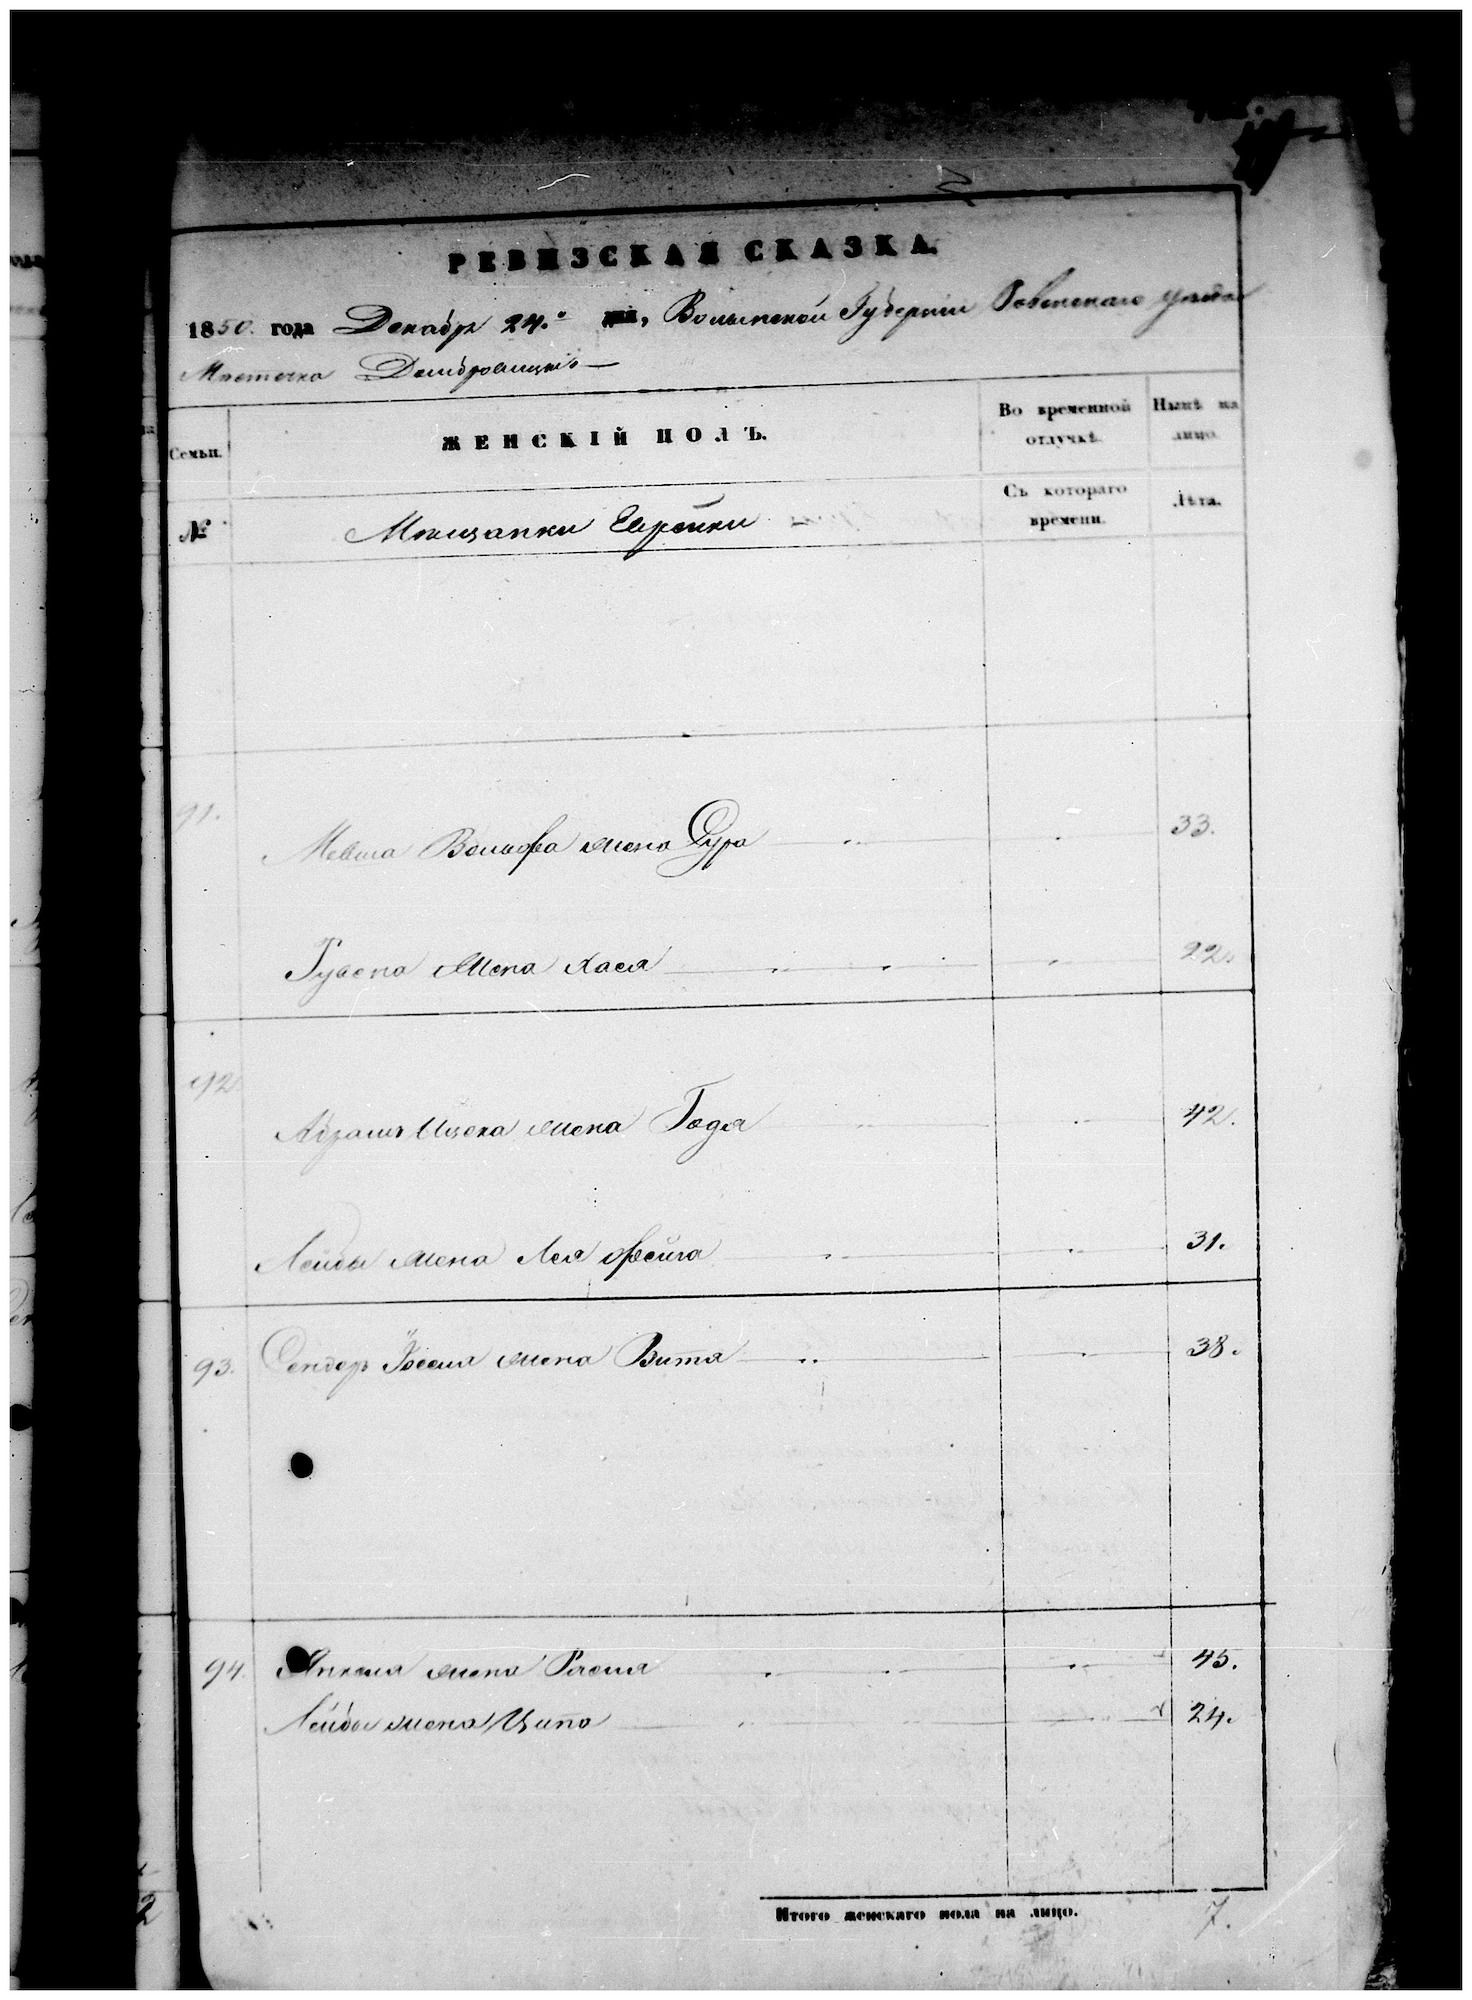 РЕВИЗСКАЯ СКАЗКА.
1850. года Декабря 24.го дня, Волынской Губернии Ровенскаго уезда
Местечка Домбровицы
Семьи.
ЖЕНСКІЙ ПОЛЪ.
Во временной отлучкѣ.
Нынѣ на лицо.
№
Мещанки Еврейки
Съ котораго времени.
Лѣта.
91.
Мевша Вольфа жена Сура 33.
Рувена жена Хася 22.
92
Абрамъ Ицека жена Годя 42.
Лейбы жена Лея Фейга 31.
93. Сендеръ Іоселя жена Витя 38.
94. Янкеля жена Рася 45.
Лейбы жена Ципа 24.
Итого женскаго пола на лицо. 7.